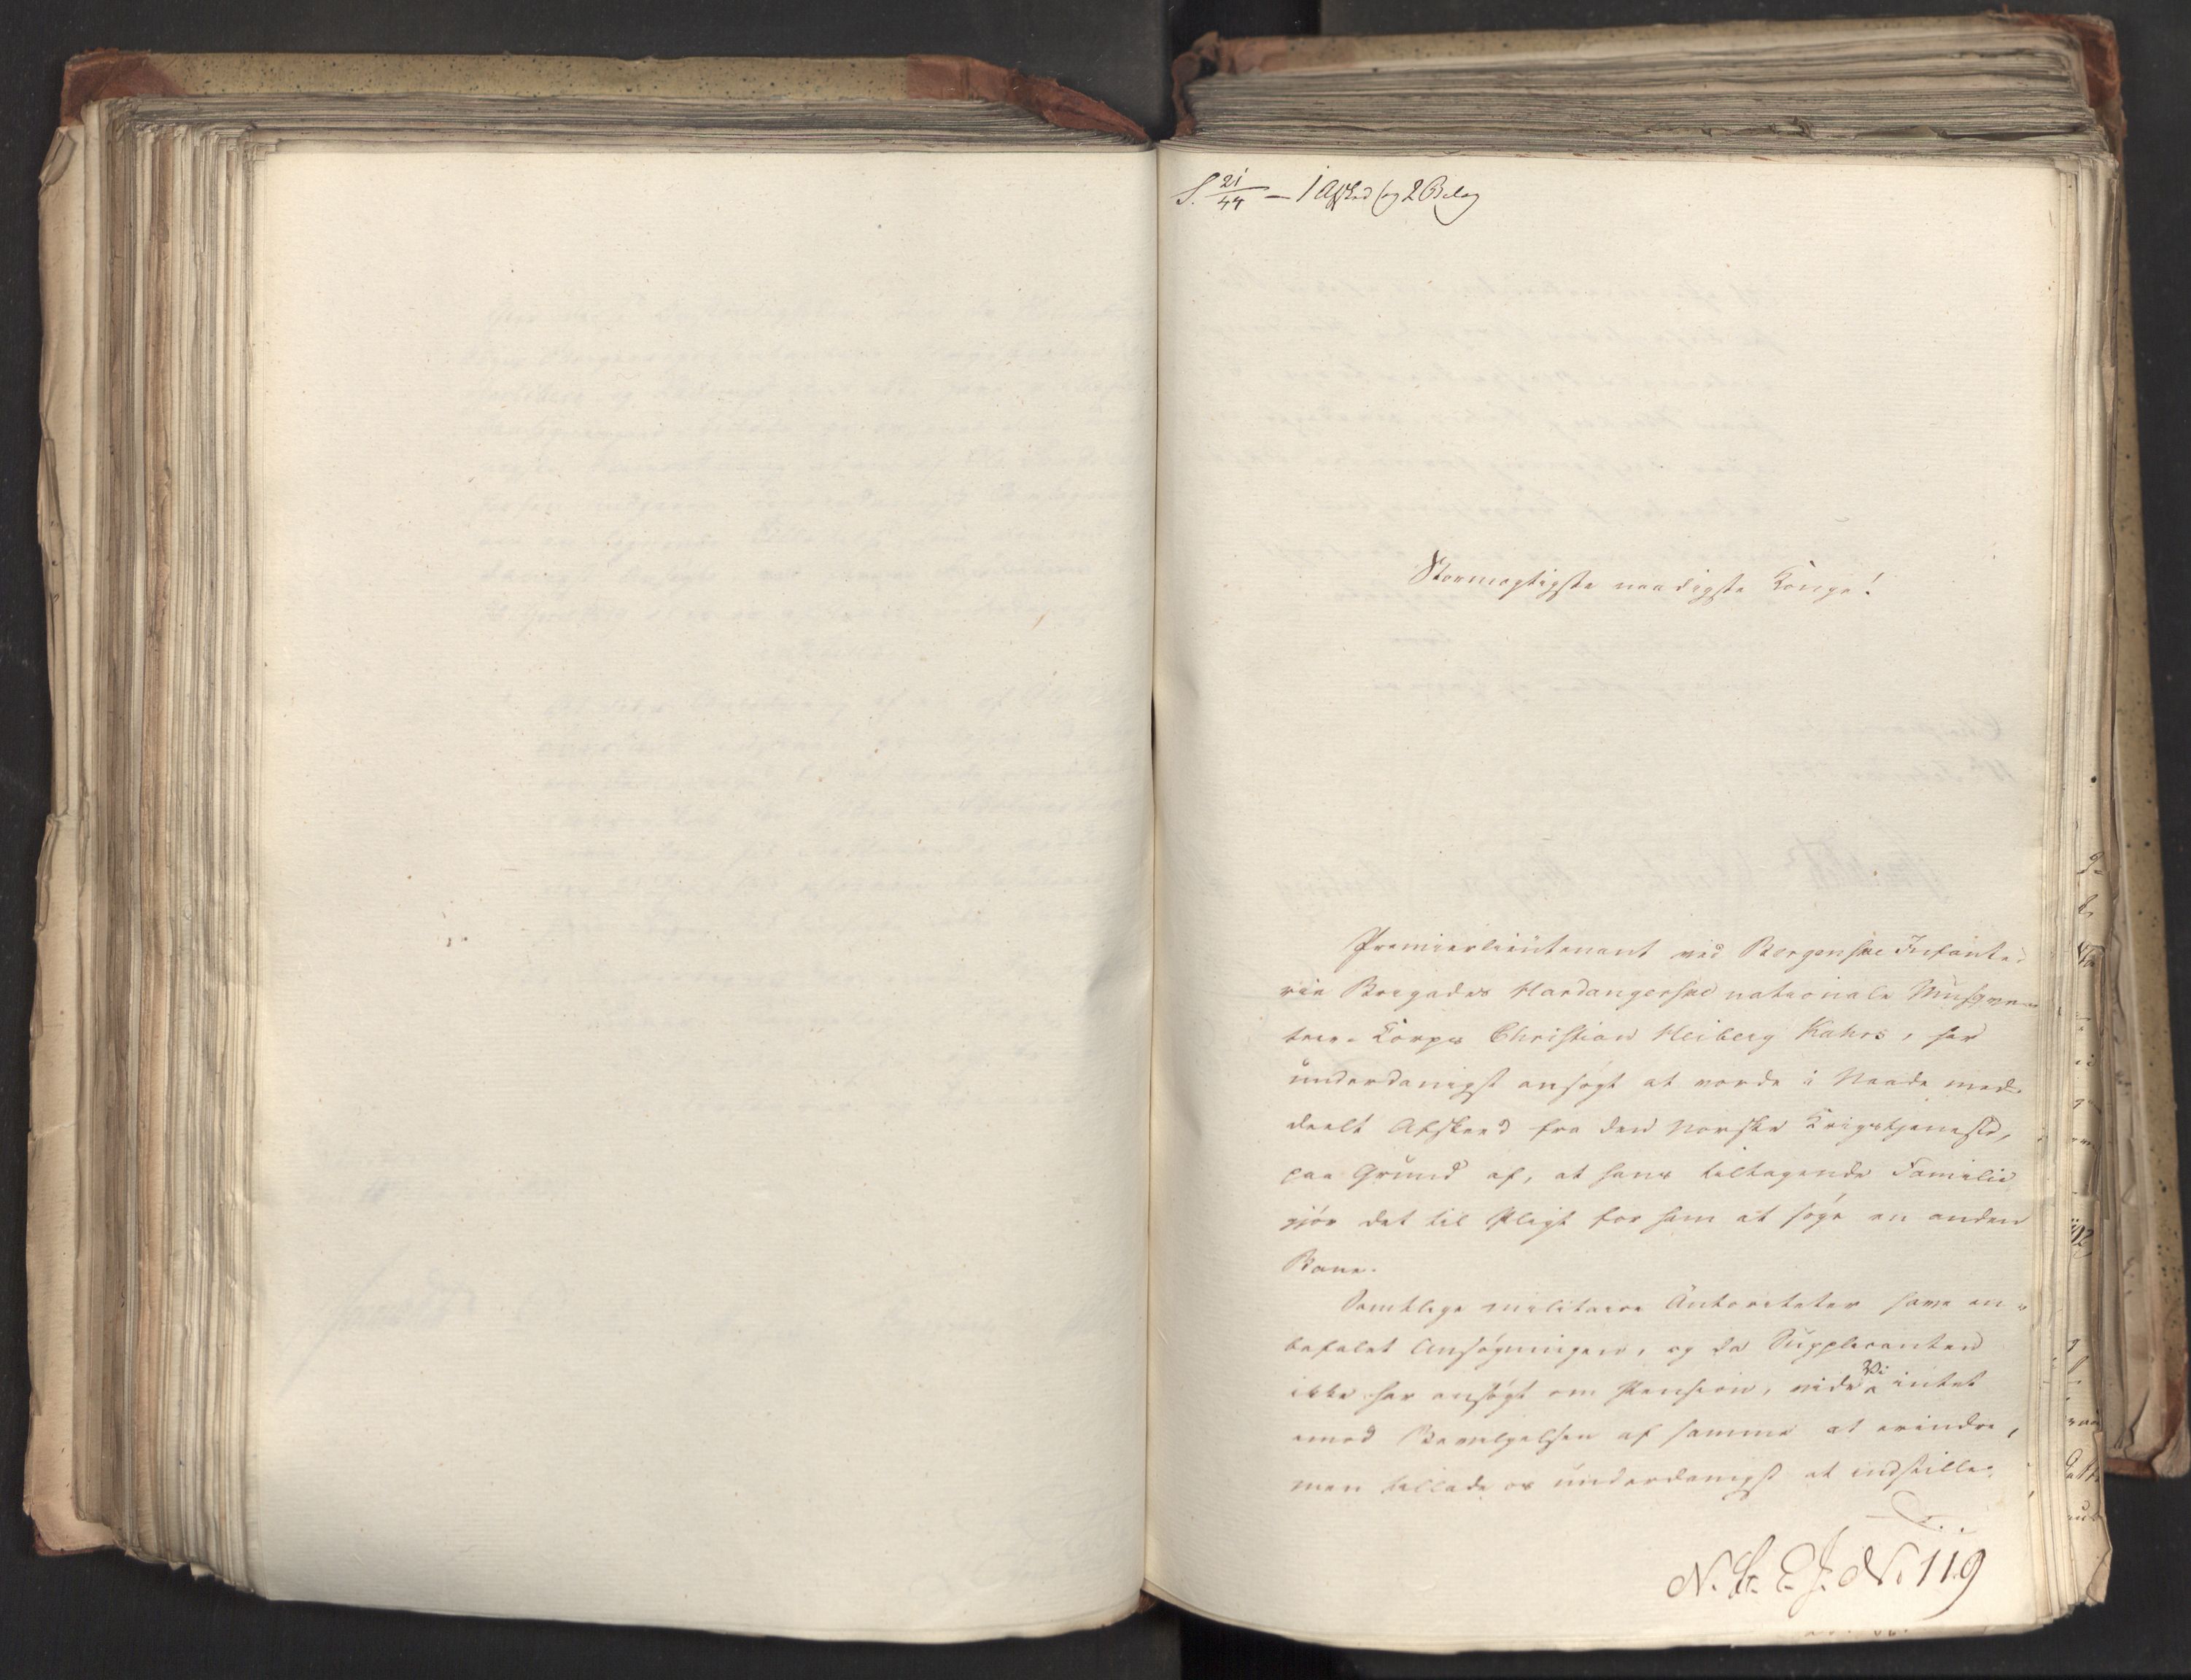 S. 21/44 — 1 Afsked og 2 Bilag
Stormægtigste naadigste Konge!
Premierlieutenant ved Bergenske Infante-
rie Brigades Hardangerske nationale Musqve-
teer-Korps Christian Heiberg Kahrs, har
underdanigst ansøgt at vorde i Naade med-
deelt Afskeed fra den Norske Krigstjeneste,
paa Grund af, at hans tiltagende Familie
gjør det til Pligt for ham at søge en anden
Bane.
Samtlige militaire Autoriteter have an-
befalet Ansøgningen, og da Supplicanten
ikke har ansøgt om Pension, vide Vi intet
imod Bevilgelsen af samme at erindre,
men tillade os underdanigst at indstille:
N. St. E. J. No. 119